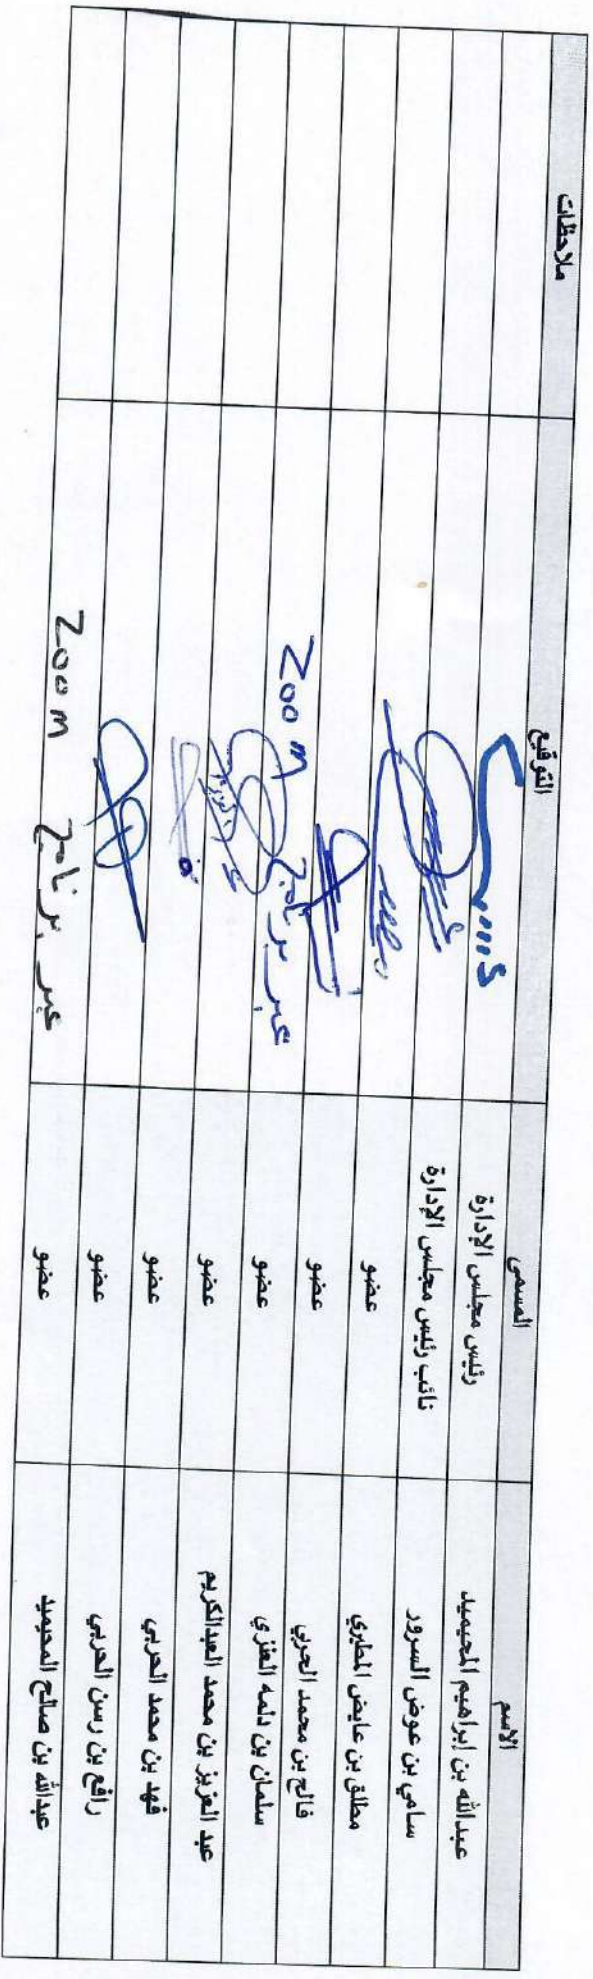 الاسم المسمى التوقيع ملاحظات
عبدالله بن إبراهيم المحيميد رئيس مجلس الإدارة
سامي بن عوض السرور نائب رئيس مجلس الإدارة
مطلق بن عايض المطيري عضو
فالح بن محمد الحربي عضو
سلمان بن دلمه العنزي عضو عبر برنامج zoom
عبد العزيز بن محمد العبدالكريم عضو
فهد بن محمد الحربي عضو
رافع بن رسن الحربي عضو
عبدالله بن صالح المحيميد عضو عبر برنامج zoom